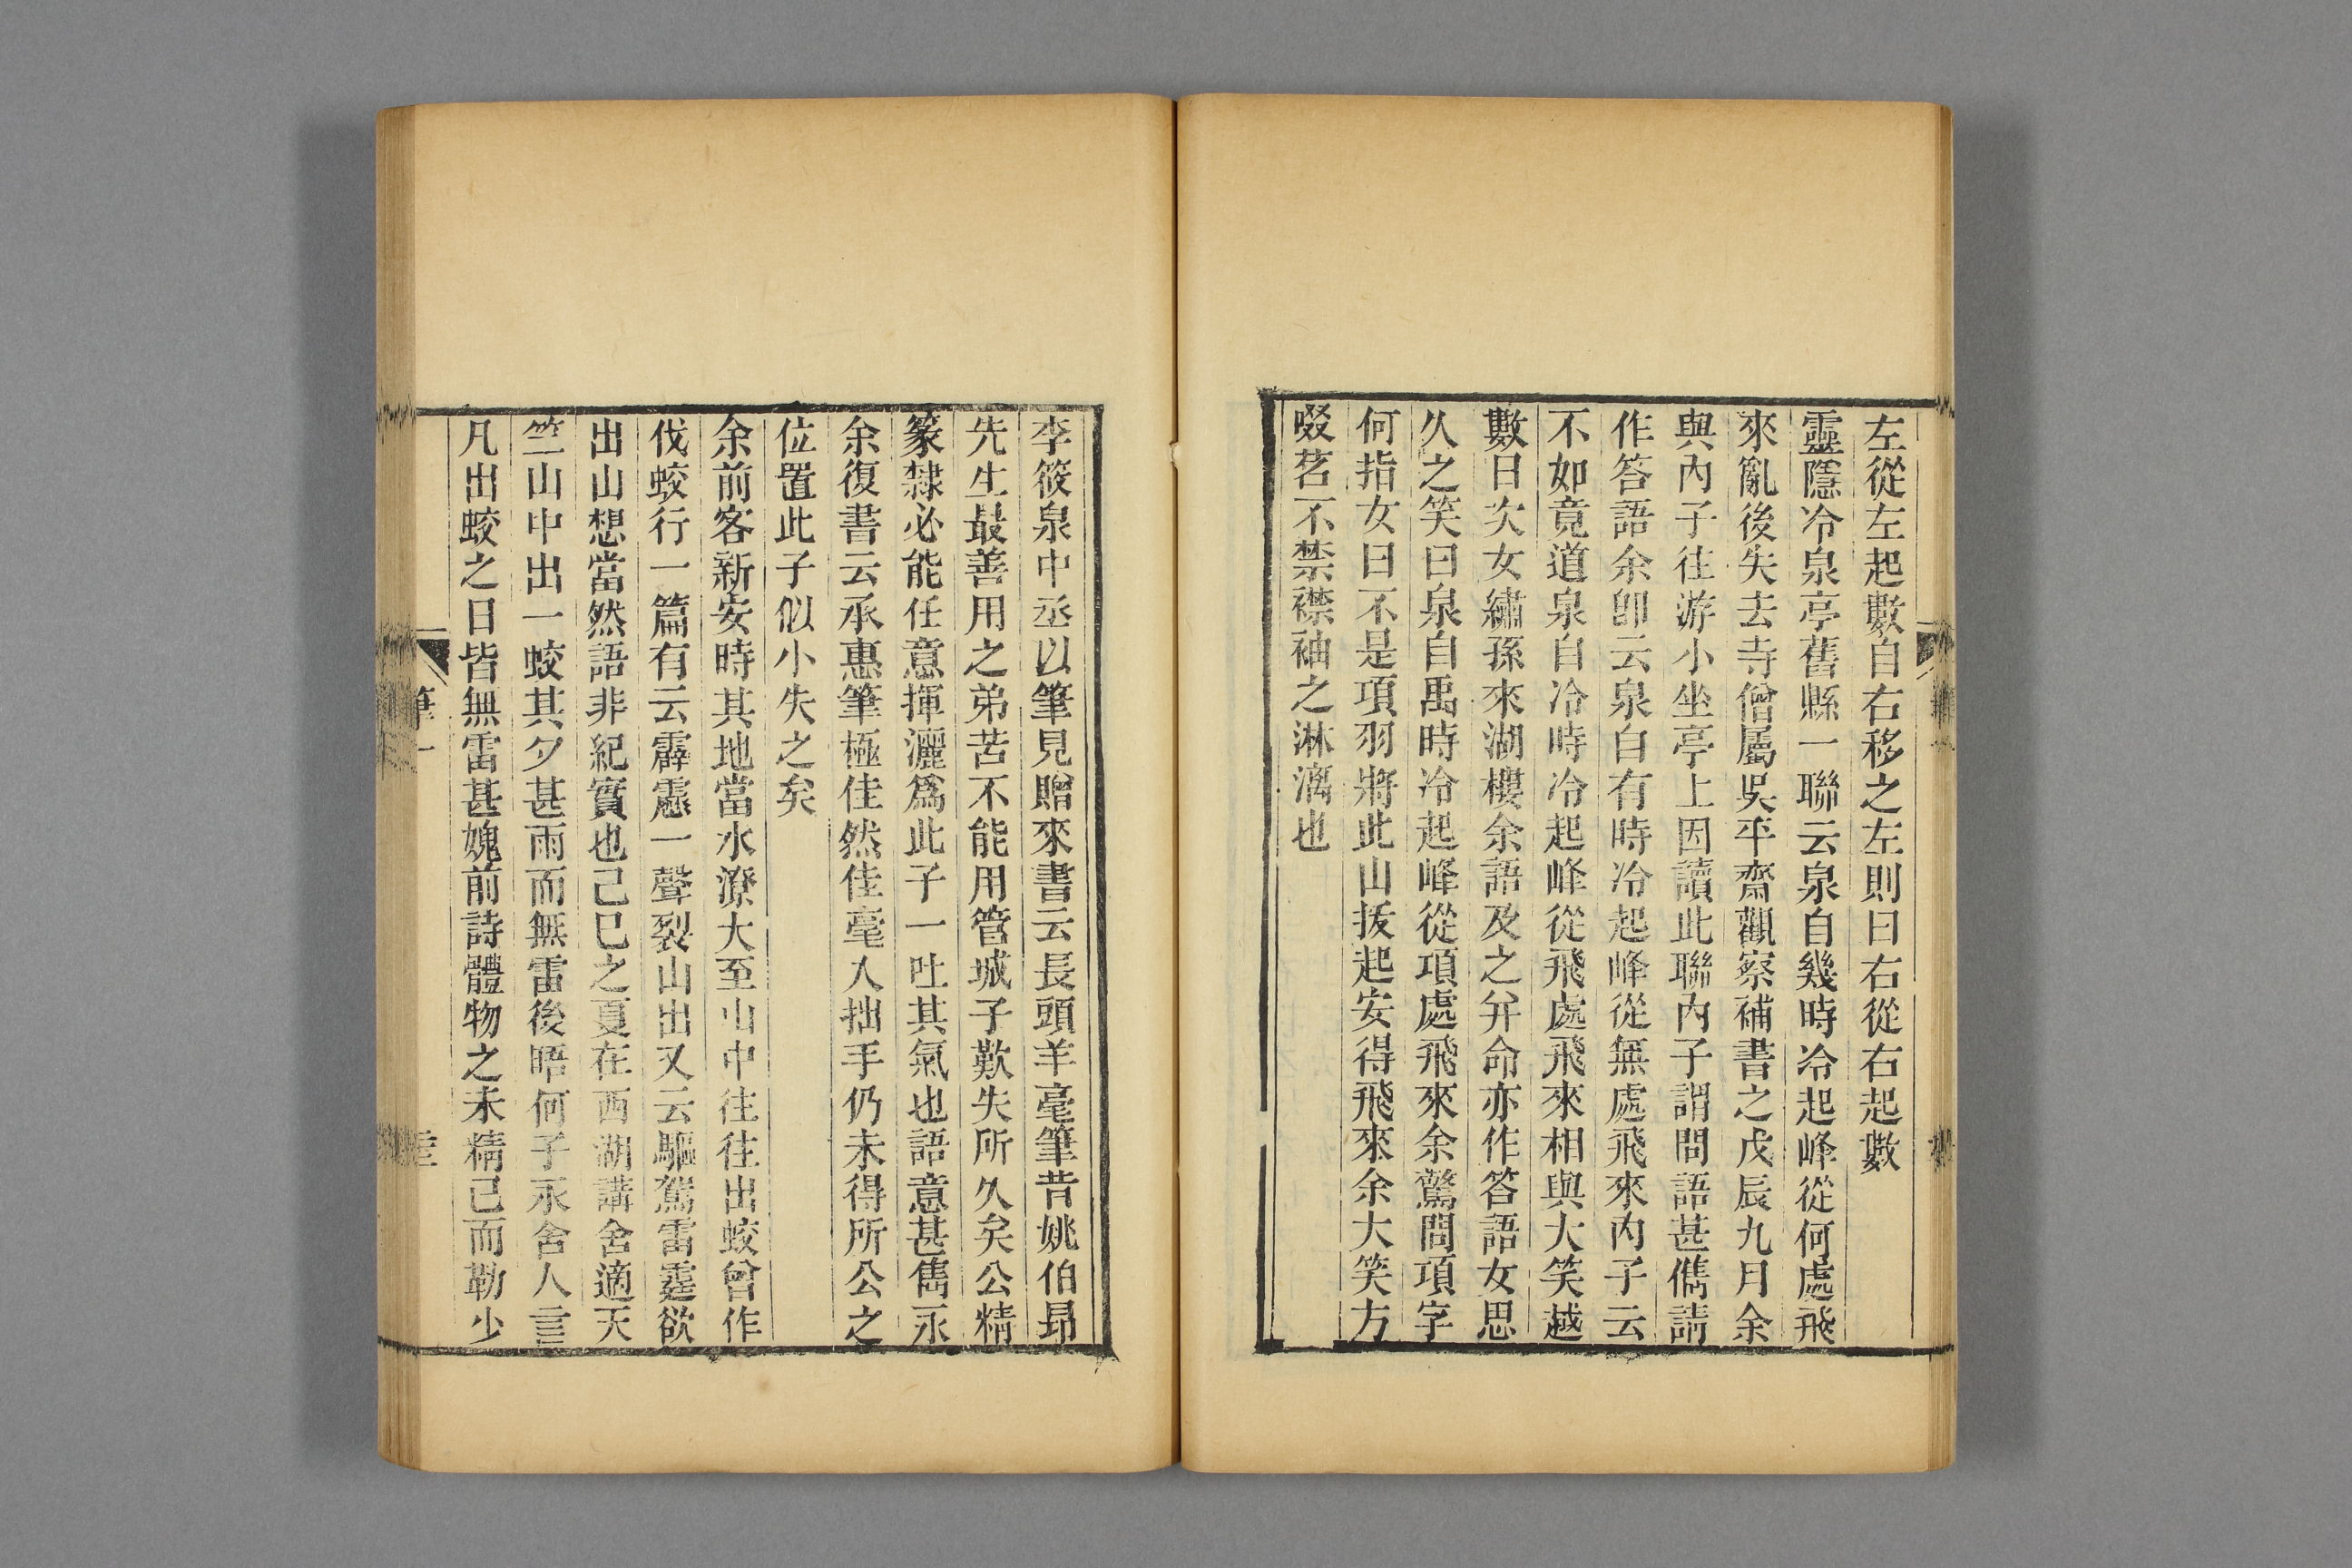 左從左起數自右移之左則曰右從右起數
靈隱冷泉亭舊縣一聯云泉自幾時冷起峰從何處飛
來亂後失去寺僧屬吳平齋觀察補書之戊辰九月余
與內子往游小坐亭上因讀此聯內子謂問語甚儁請
作答語余卽云泉自有時冷起峰從無處飛來內子云
不如竟道泉自冷時冷起峰從飛處飛來相與大笑越
數日次女繡孫來湖樓余語及之幷命亦作答語女思
久之笑曰泉自禹時冷起峰從項處飛來余驚問項字
何指女曰不是項羽將此山拔起安得飛來余大笑方
啜茗不禁襟袖之淋漓也
李筱泉中丞以筆見贈來書云長頭羊毫筆昔姚伯昻
先生最善用之弟苦不能用管城子歎失所久矣公精
篆隸必能任意揮灑爲此子一吐其氣也語意甚儁永
余復書云承惠筆極佳然佳毫人拙手仍未得所公之
位置此子似小失之矣
余前客新安時其地當水潦大至山中往往出蛟曾作
伐蛟行一篇有云霹靂一聲裂山出又云驅駕雷霆欲
出山想當然語非紀實也己巳之夏在西湖講舍適天
竺山中出一蛟其夕甚雨而無雷後晤何子永舍人言
凡出蛟之日皆無雷甚媿前詩體物之未精已而勒少
筆一